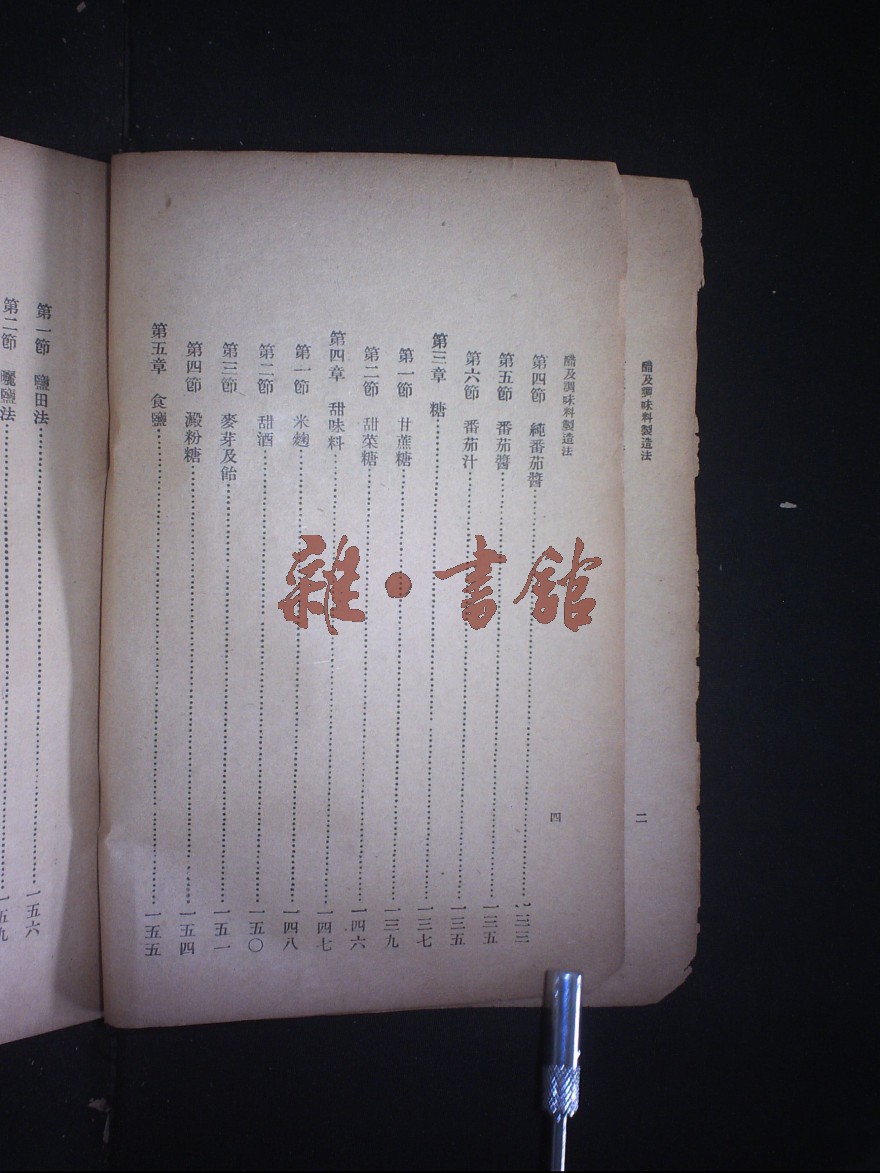 醋及調味料製造法
二
醋及調味料製造法
四
第四節 純番茄醬……一三三
第五節 番茄醬……一三五
第六節 番茄汁……一三五
第三章 糖……一三七
第一節 甘蔗糖……一三九
第二節 甜菜糖……一四六
第四章 甜味料……一四七
第一節 米麴……一四八
第二節 甜酒……一五〇
第三節 麥芽及飴……一五一
第四節 澱粉糖……一五四
第五章 食鹽……一五五
第一節 鹽田法……一五六
第二節 曬鹽法……一五九
雜·書館